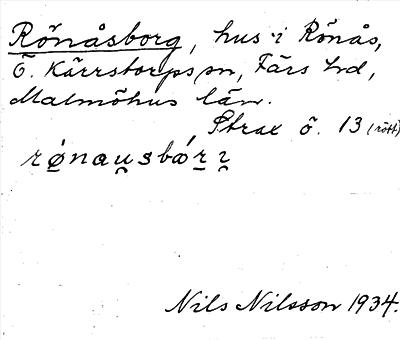 Rönåsborg, hus i Rönås,
Ö. Kärrstorps sn, Färs hd,
Malmöhus län.
Strax ö. 13 (rött)
rǿ̱nau̯sbǿr̠i̯
Nils Nilsson 1934.